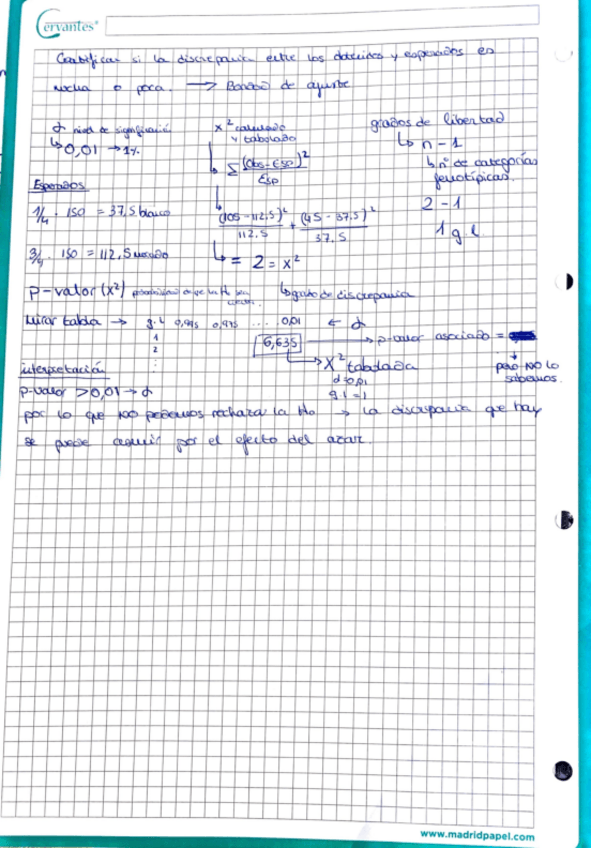 Cervantes®
Cuantificar si la discrepancia entre los obtenidos y esperados es
mucha o poca. → Bondad de ajuste
α nivel de significación
↳ 0,01 → 1%
x² calculado
y tabulado
↳ Σ (Obs - Esp)² / Esp
grados de libertad
↳ n - 1
↳ nº de categorías
fenotípicas.
2 - 1
1 g.l
Esperados
1/4 · 150 = 37,5 blanco
3/4 · 150 = 112,5 morado
(105 - 112,5)² / 112,5 + (45 - 37,5)² / 37,5
↳ = 2 = x²
↳ grado de discrepancia
P-valor (x²) probabilidad de que la H₀ sea
cierta.
Mirar tabla → g.l 0,995 0,975 .... 0,01 ← α
1
2
6,635 → p-valor asociado =
pero NO lo
sabemos.
↳ X² tabulada
α=0,01
g.l=1
interpretación
p-valor > 0,01 → α
por lo que no podemos rechazar la H₀ → la discrepancia que hay
se puede asumir por el efecto del azar.
www.madridpapel.com